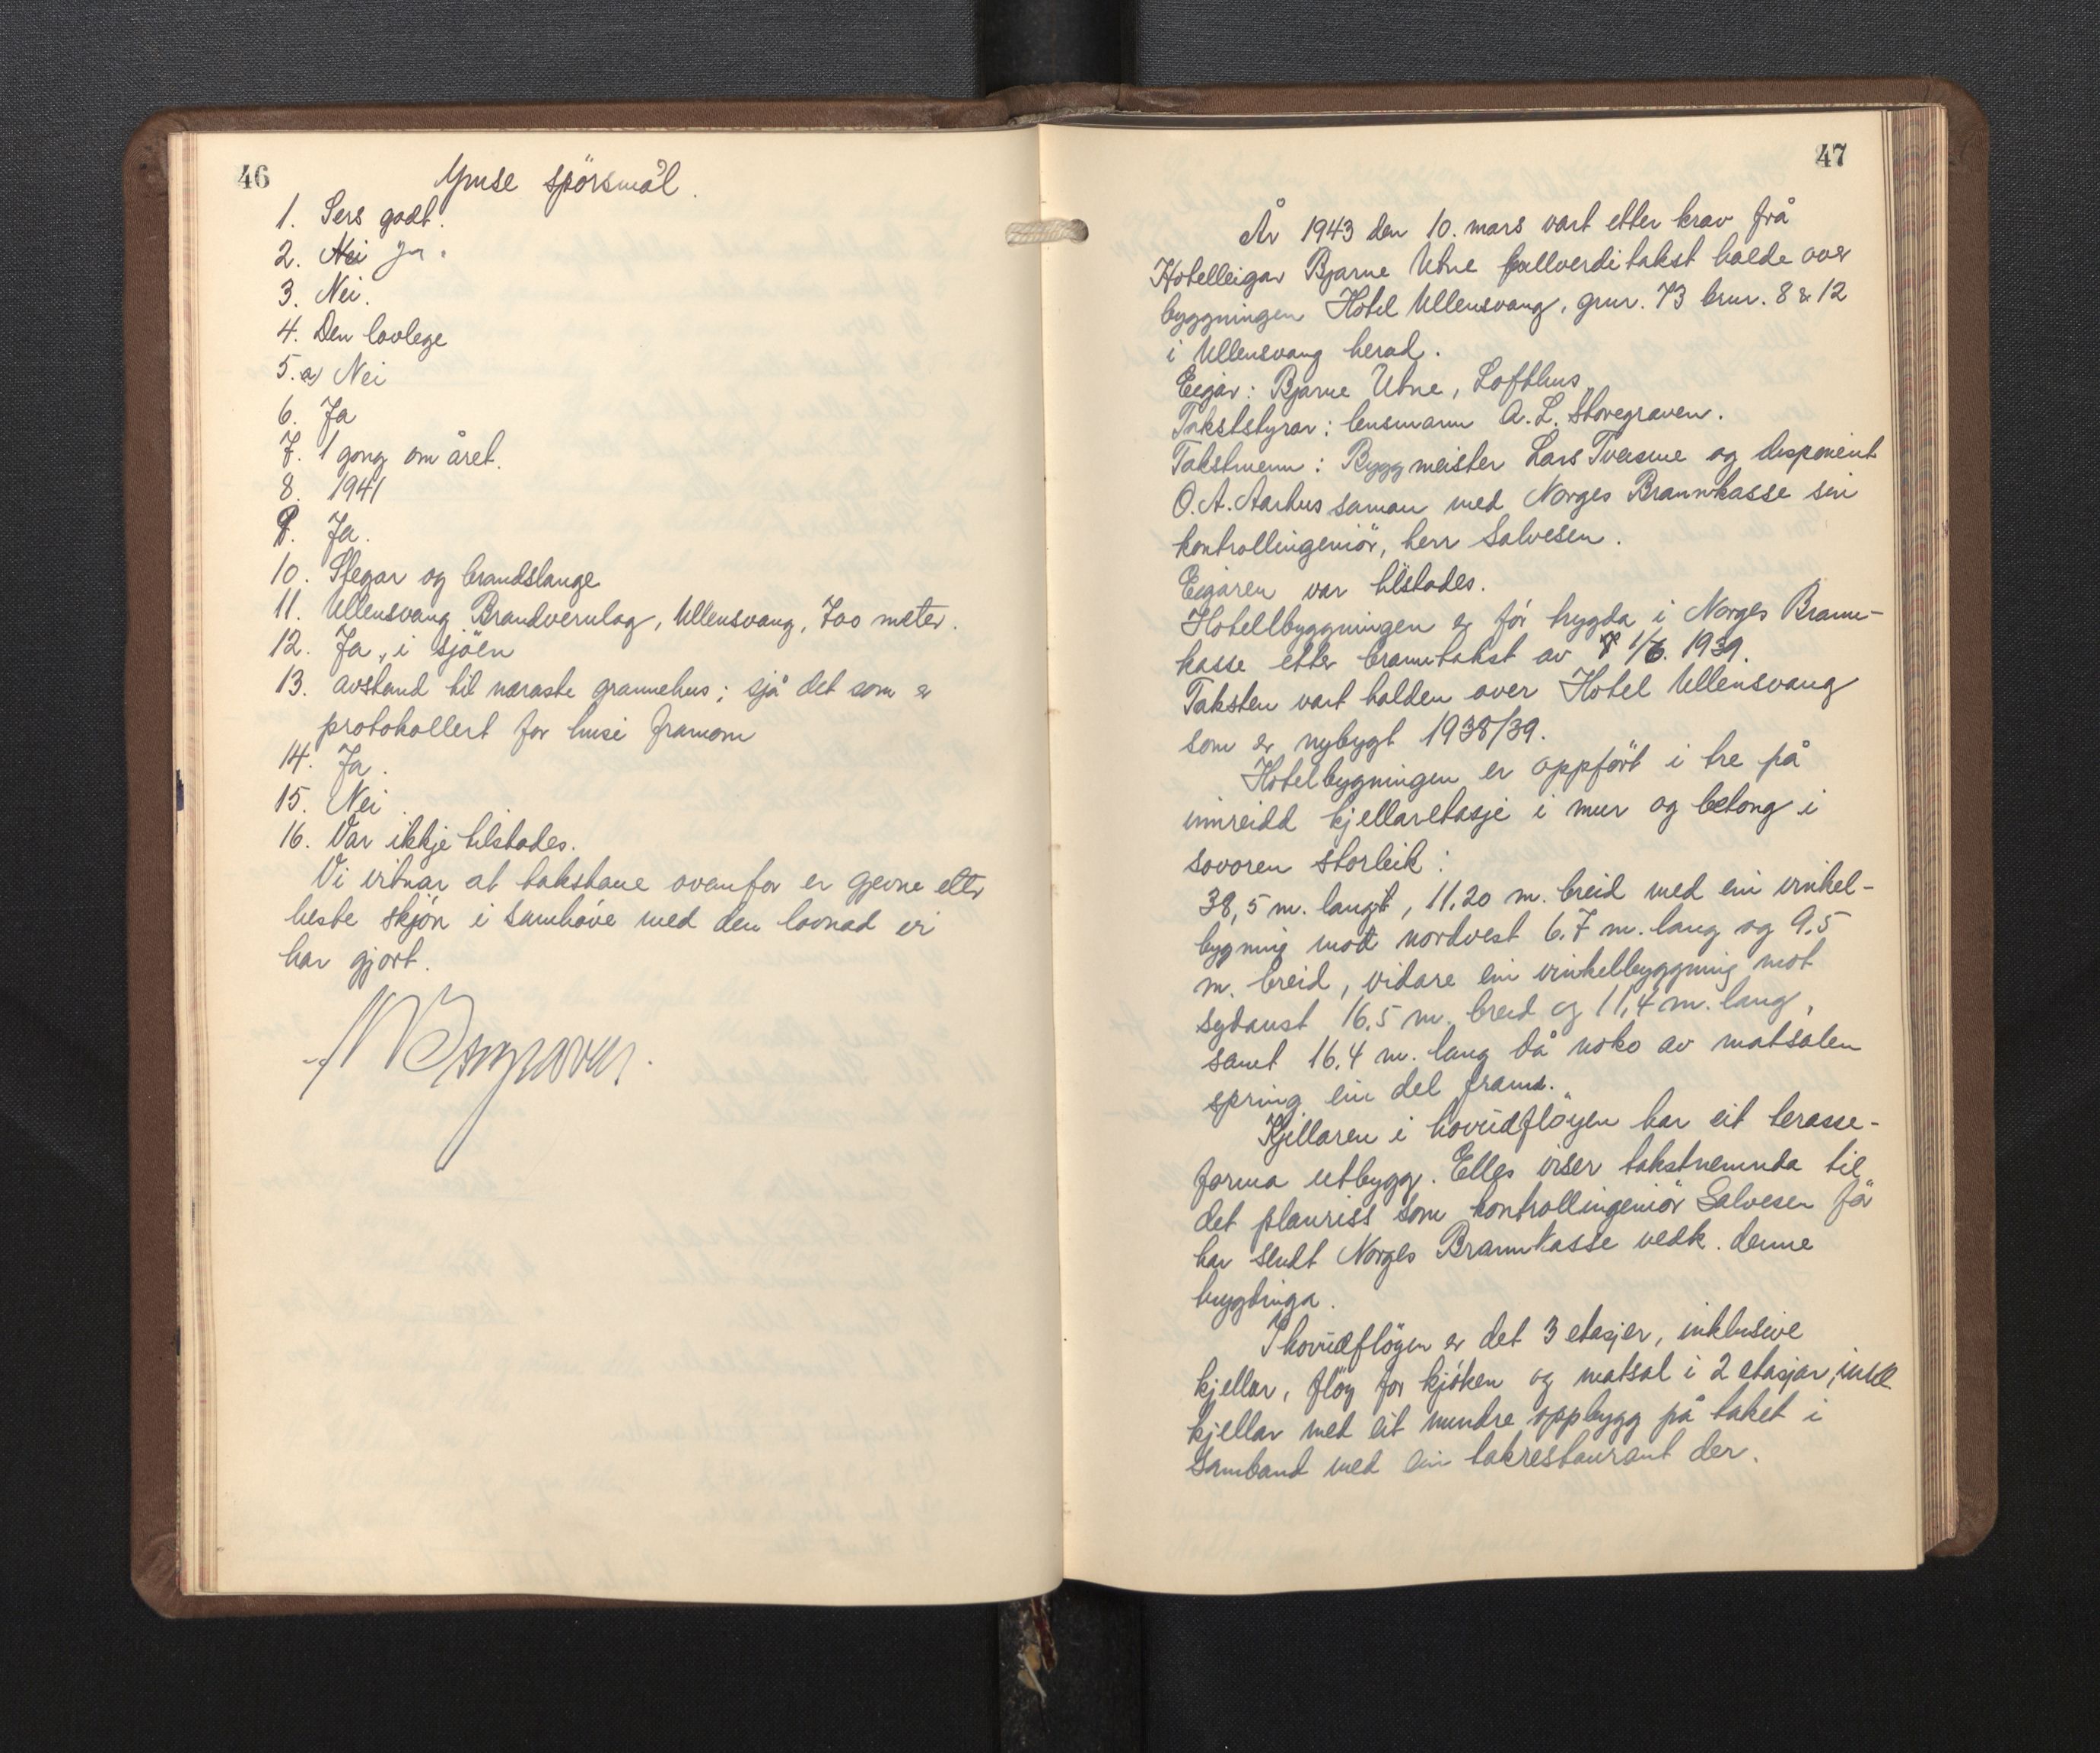 46
Ymse spörsmål.
1. Sers godt.
2. Nei Ja.
3. Nei.
4. Den lovlege
5. a) Nei
6. Ja
7. 1 gong om året.
8. 1941
9. Ja.
10. Stegar og brandslange
11. Ullensvang Brandvernlag, Ullensvang, 700 meter.
12. Ja, i sjöen
13. avstand til næraste grannehus; sjå det som er
protokollert for husi framom
14. Ja.
15. Nei.
16. Var ikkje tilstades.
Vi vitnar at takstane ovanfor er gjevne etter
beste skjön i samhöve med den lovnad vi
har gjort.
47
År 1943 den 10. mars vart etter krav frå
Hotelleigar Bjarne Utne fullverditakst halde over
byggningen Hotel Ullensvang, gnr. 73 bnr. 8 & 12
i Ullensvang herad.
Eigar: Bjarne Utne, Lofthus
Takststyrar: lensmann A. L. Storegraven.
Takstmenn: Byggmeister Lars Tveisme og disponent
O. A. Aarhus saman med Norges Brannkasse sin
kontrollingeniör, herr Salvesen.
Eigaren var tilstades.
Hotellbyggningen er för trygda i Norges Brann-
kasse etter branntakst av 1/6. 1939.
Taksten vart halden over Hotel Ullensvang
som er nybygt 1938/39.
Hotelbygningen er oppfört i tre på
innreidd kjellaretasje i mur og betong i
sovoren storleik:
38,5 m. langt, 11.20 m. breid med ein vinkel-
bygning mot nordvest 6.7 m. lang og 9.5
m. breid, vidare ein vinkelbyggning mot
sydaust 16.5 m. breid og 11,4 m. lang,
samt 16.4 m. lang då noko av matsalen
spring ein del fram.
Kjellaren i hovudflöyen har eit terasse-
forma utbygg. Elles viser takstnemnda til
det planriss som kontrollingeniör Salvesen för
har sendt Norges Brannkasse vedk. denne
bygdinga.
I hovudflöyen er det 3 etasjer, inklusive
kjellar, flöy for kjöken og matsal i 2 etasjar, inkl.
kjellar med eit mindre oppbygg på taket i
samband med ein takrestaurant der.